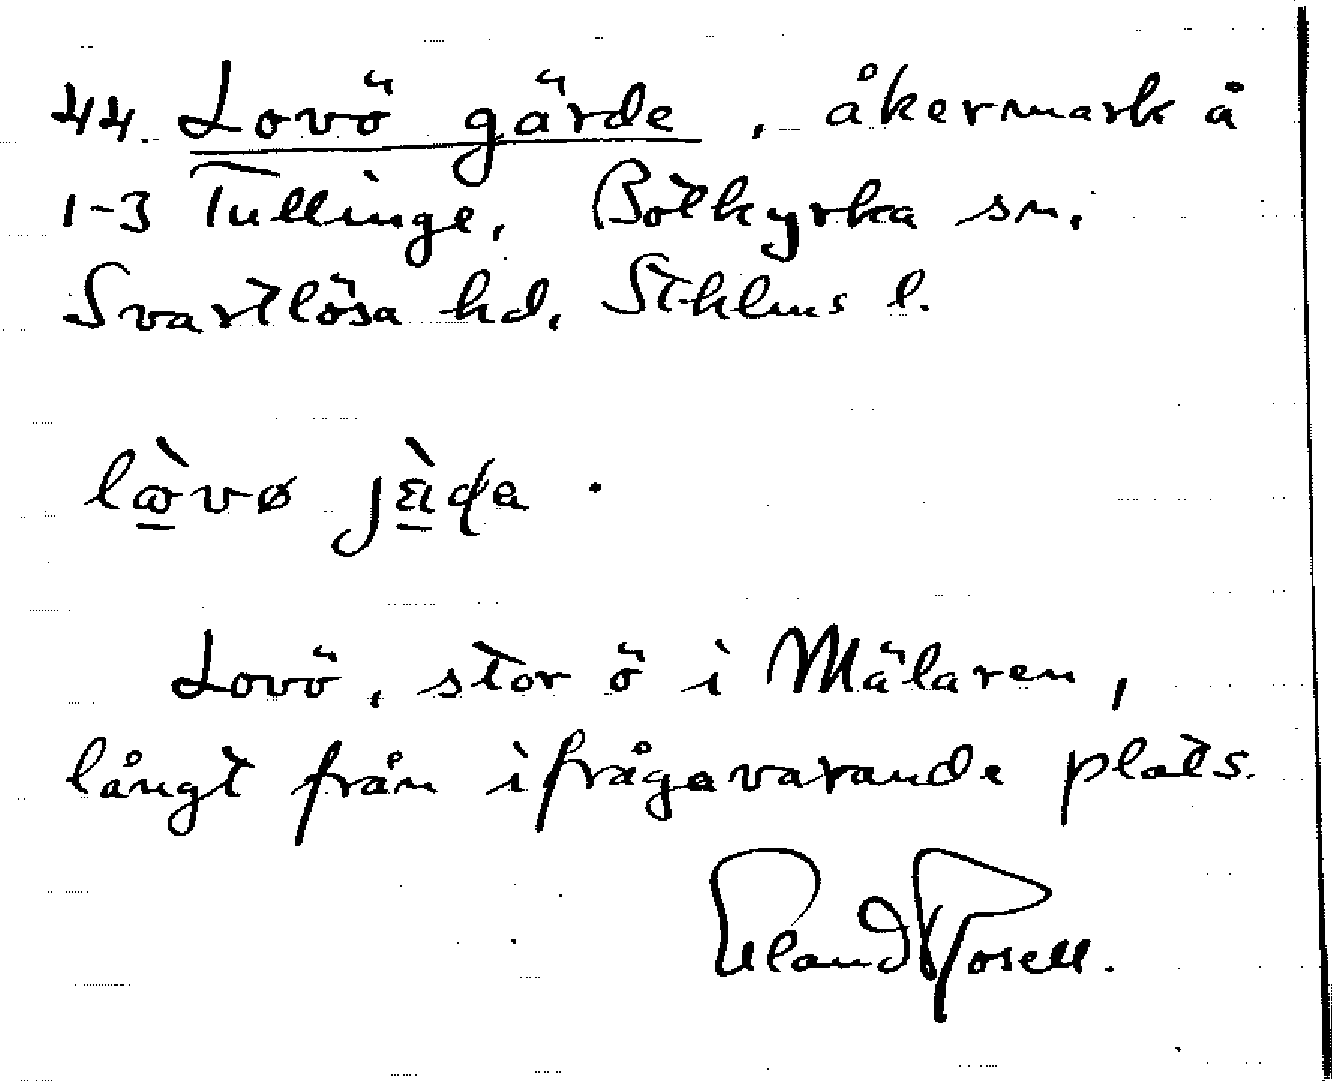 44. Lovö gärde, åkermark å
1-3 Tullinge, Botkyrka sn.
Svartlösa hd, Sthlms l.
lovø
Lovö, stor ö i Mälaren,
långt från ifrågavarande plats.
Erland Rosell.